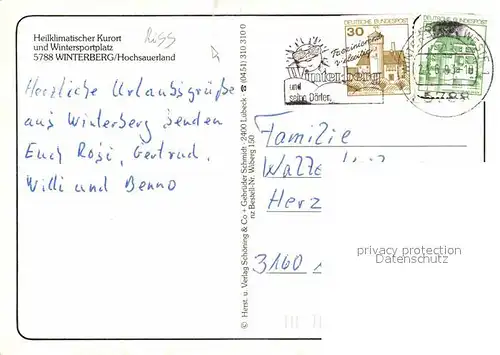 Heilklimatischer Kurort
und Wintersportplatz
5788 WINTERBERG/Hochsauerland
Riss
Herzliche Urlaubsgrüße
aus Winterberg senden
Euch Rosi, Gertrud,
Willi und Benno
© Herst. u. Verlag Schöning & Co + Gebrüder Schmidt · 2400 Lübeck ☎ (0451) 310 310 0
nz Bestell-Nr. Wiberg 150
DEUTSCHE BUNDESPOST
30
DEUTSCHE BUNDESPOST
Faszination
Winterberg
und
seine Dörfer.
5788
Familie
Herz
3160
privacy protection
DanielsAK.com